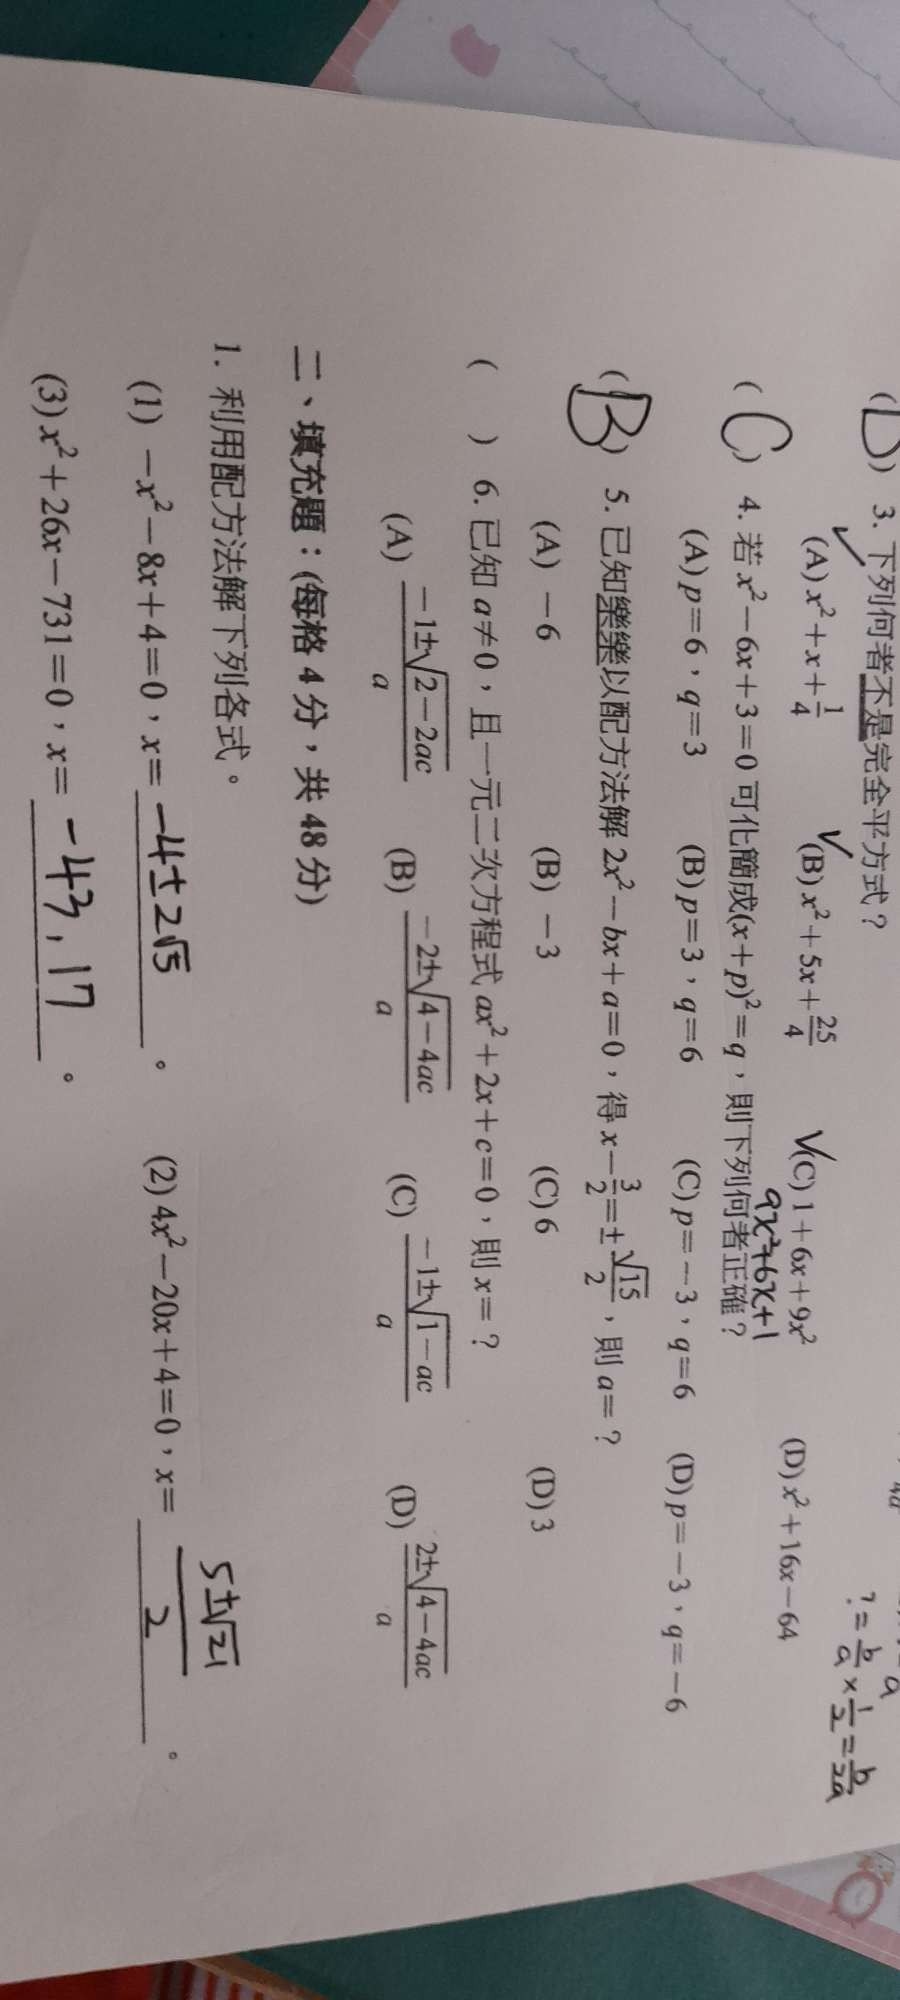 (D) 3. 下列何者不是完全平方式？
(A) x²+x+1/4 (B) x²+5x+25/4 (C) 1+6x+9x² (D) x²+16x−64
9x²+6x+1
?=b/a×1/2=b/2a
(C) 4. 若 x²−6x+3=0 可化簡成(x+p)²=q，則下列何者正確？
(A) p=6，q=3 (B) p=3，q=6 (C) p=−3，q=6 (D) p=−3，q=−6
(B) 5. 已知樂樂以配方法解 2x²−bx+a=0，得 x−3/2=±√15/2，則 a=？
(A) −6 (B) −3 (C) 6 (D) 3
( ) 6. 已知 a≠0，且一元二次方程式 ax²+2x+c=0，則 x=？
(A) (−1±√(2−2ac))/a (B) (−2±√(4−4ac))/a (C) (−1±√(1−ac))/a (D) (2±√(4−4ac))/a
二、填充題：(每格 4 分，共 48 分)
1. 利用配方法解下列各式。
(1) −x²−8x+4=0，x= −4±2√5 。 (2) 4x²−20x+4=0，x= (5±√21)/2 。
(3) x²+26x−731=0，x= −43, 17 。